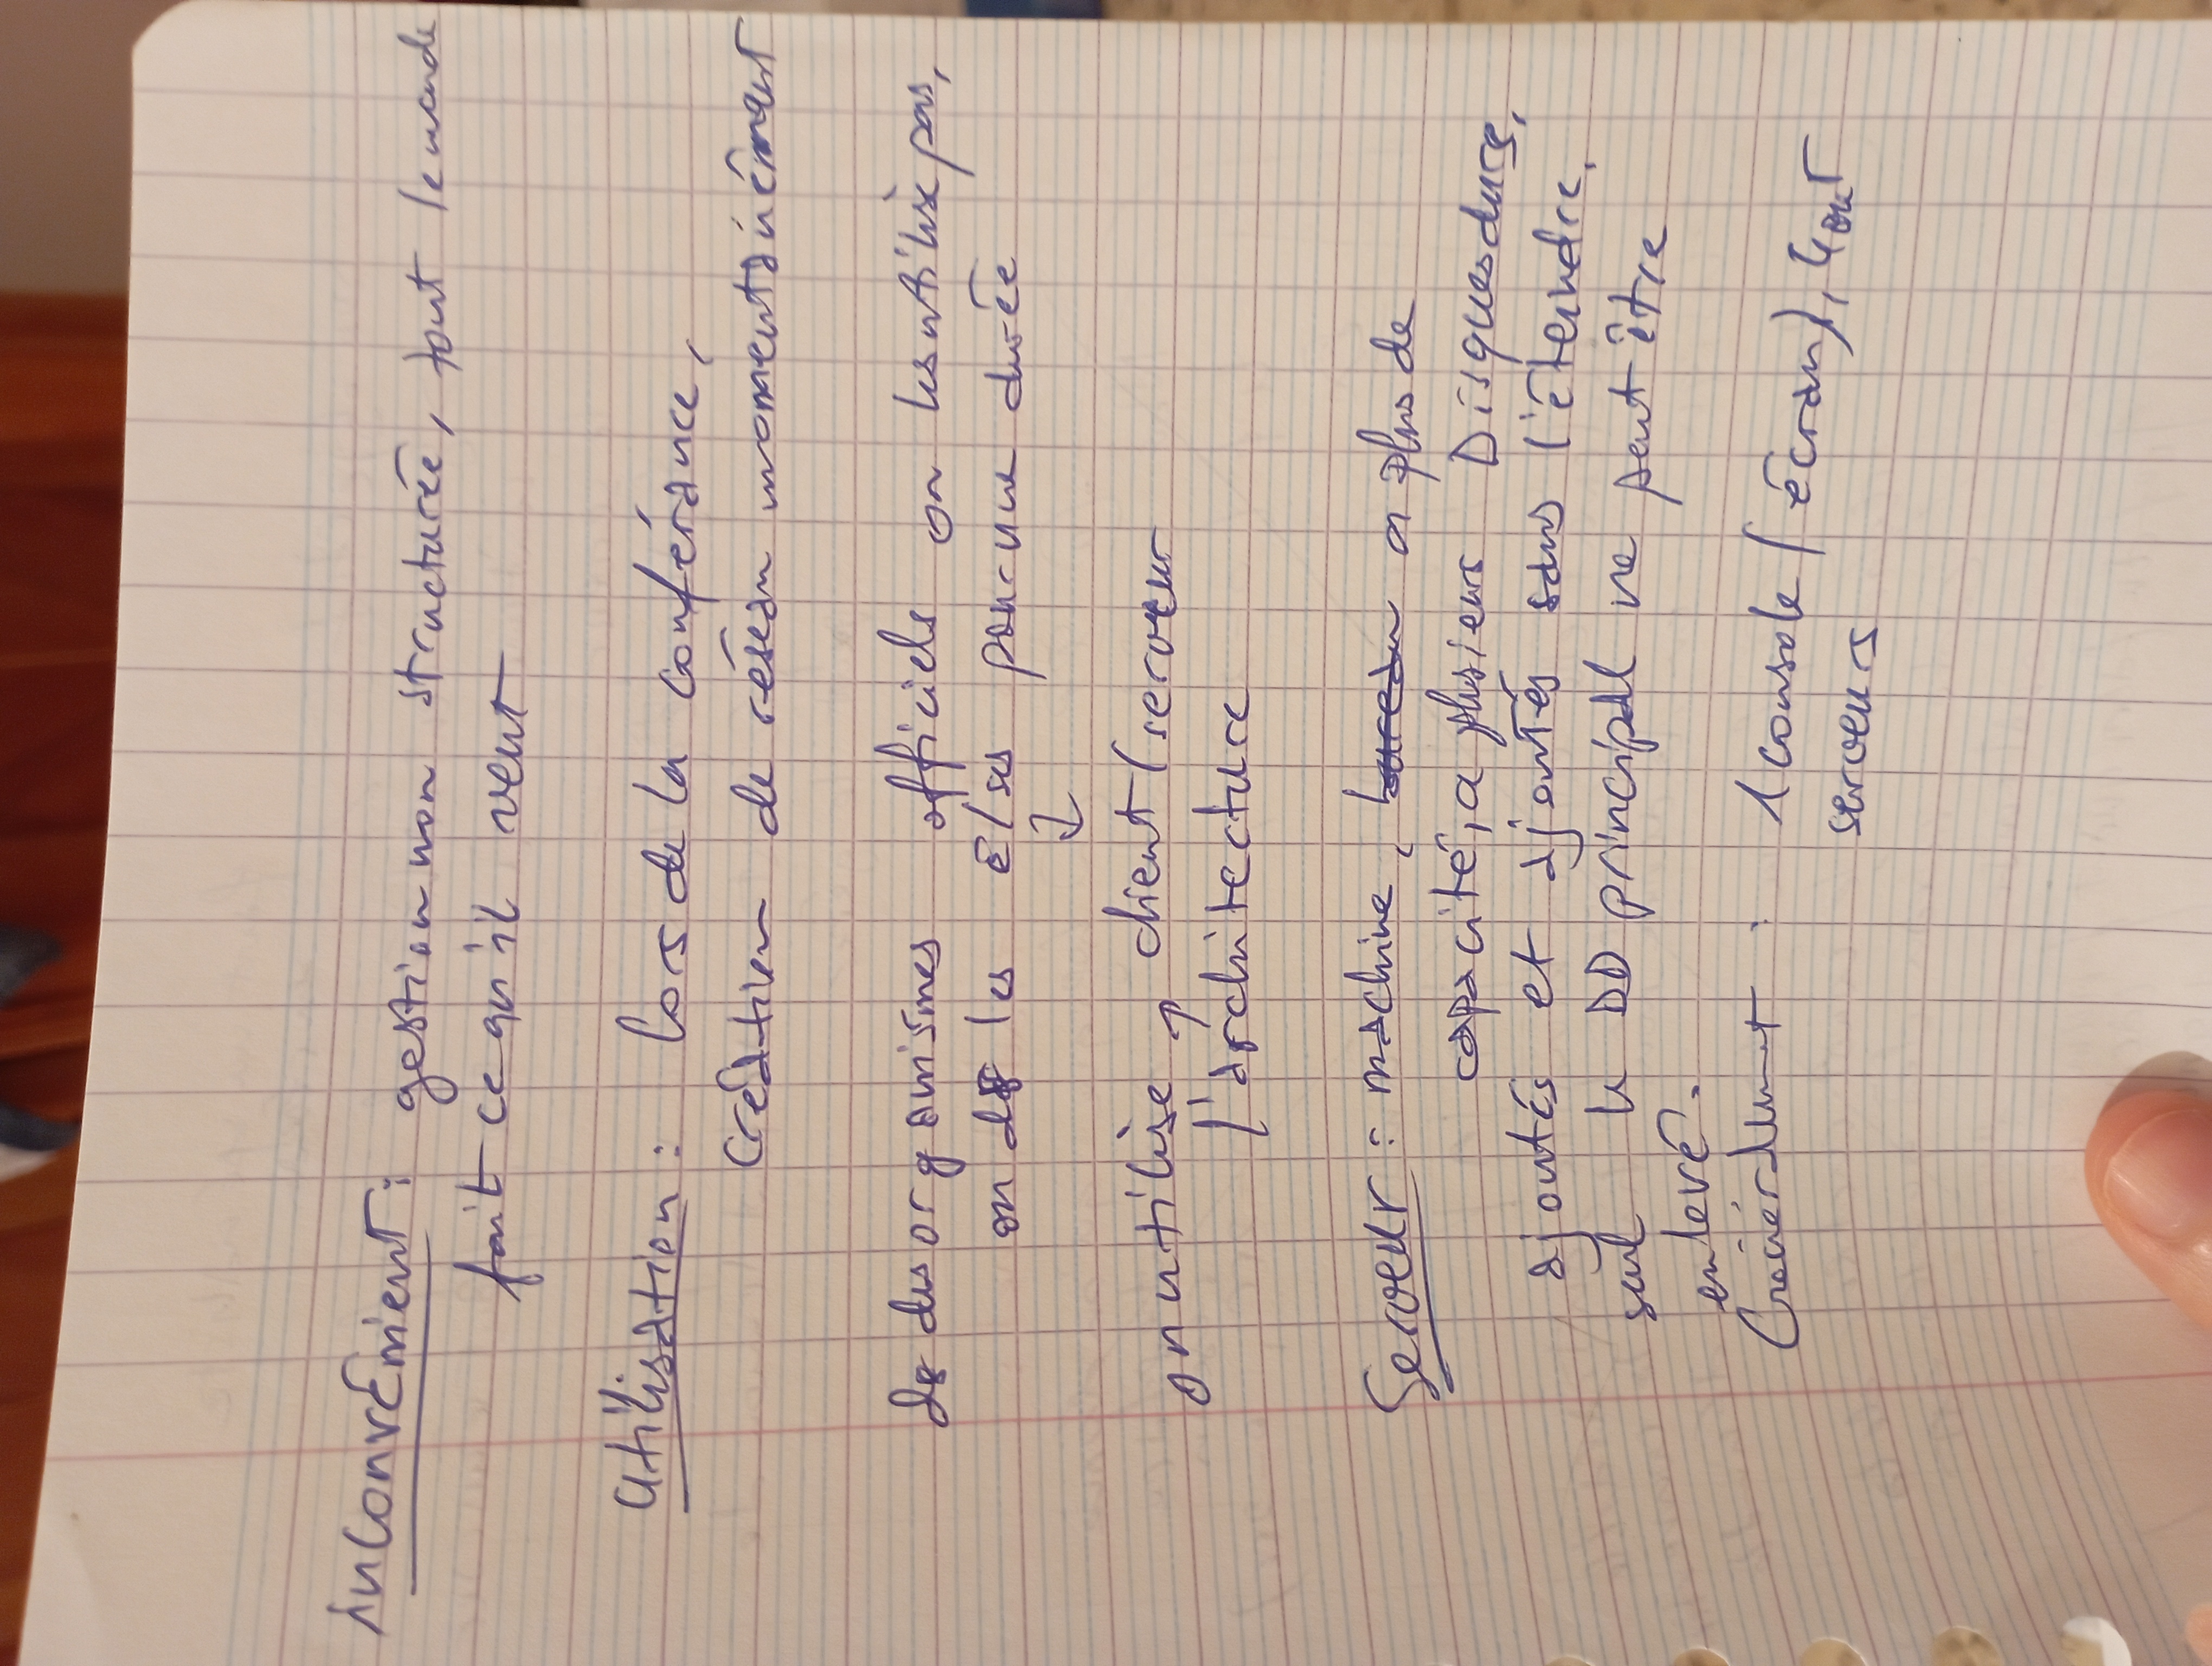 inconvénient : gestion non structurée, tout le monde
fait ce qu'il veut
Utilisation : lors de la conférance,
création de réseau momentanémant
ds des organismes officiels on les utilise pas,
on ds les É/ses pour une durée
↓
on utilise ↗ client/serveur
l'architecture
Serveur : machine, bureau a plus de
capacité, a plusieurs Disques durs,
ajoutés et ajoutés sans l'éteindre,
seul le DD principal ne peut être
enlevé.
Généralement : 1 console (écran), 4 out
serveurs